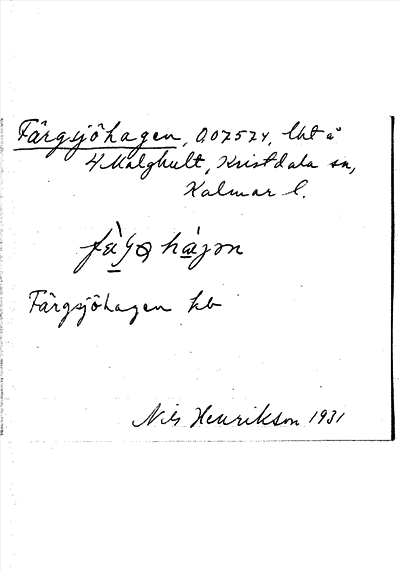 Färgsjöhagen, 007574, lht å
4 Malghult, Kristdala sn,
Kalmar l.
hájən
Färgsjöhagen kb
Nils Henrikson 1931